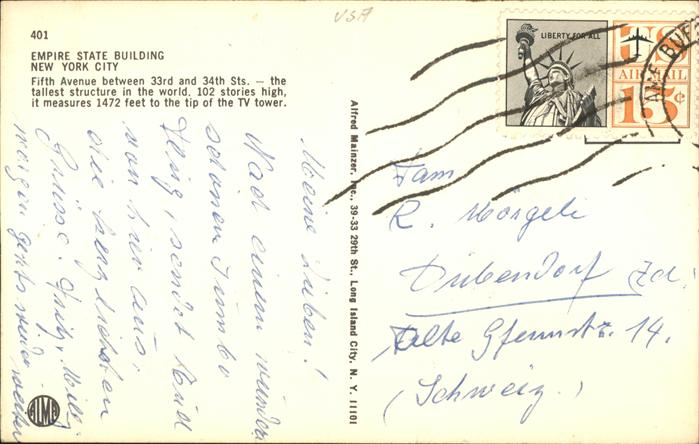 USA
401
EMPIRE STATE BUILDING
NEW YORK CITY
Fifth Avenue between 33rd and 34th Sts. — the
tallest structure in the world. 102 stories high,
it measures 1472 feet to the tip of the TV tower.
LIBERTY FOR ALL
US
AIR MAIL
15¢
Alfred Mainzer, Inc., 39-33 29th St., Long Island City, N. Y. 11101
Meine Lieben!
Nach einem wunder
schönen Jumbo
sendet Euch
von hier aus,
die herzlichsten
Grüsse. Fritz,
morgen gehts wieder weiter
Fam
R. Mörgeli
Dübendorf Zch.
Alte Gfennstr. 14.
(Schweiz)
ALMA